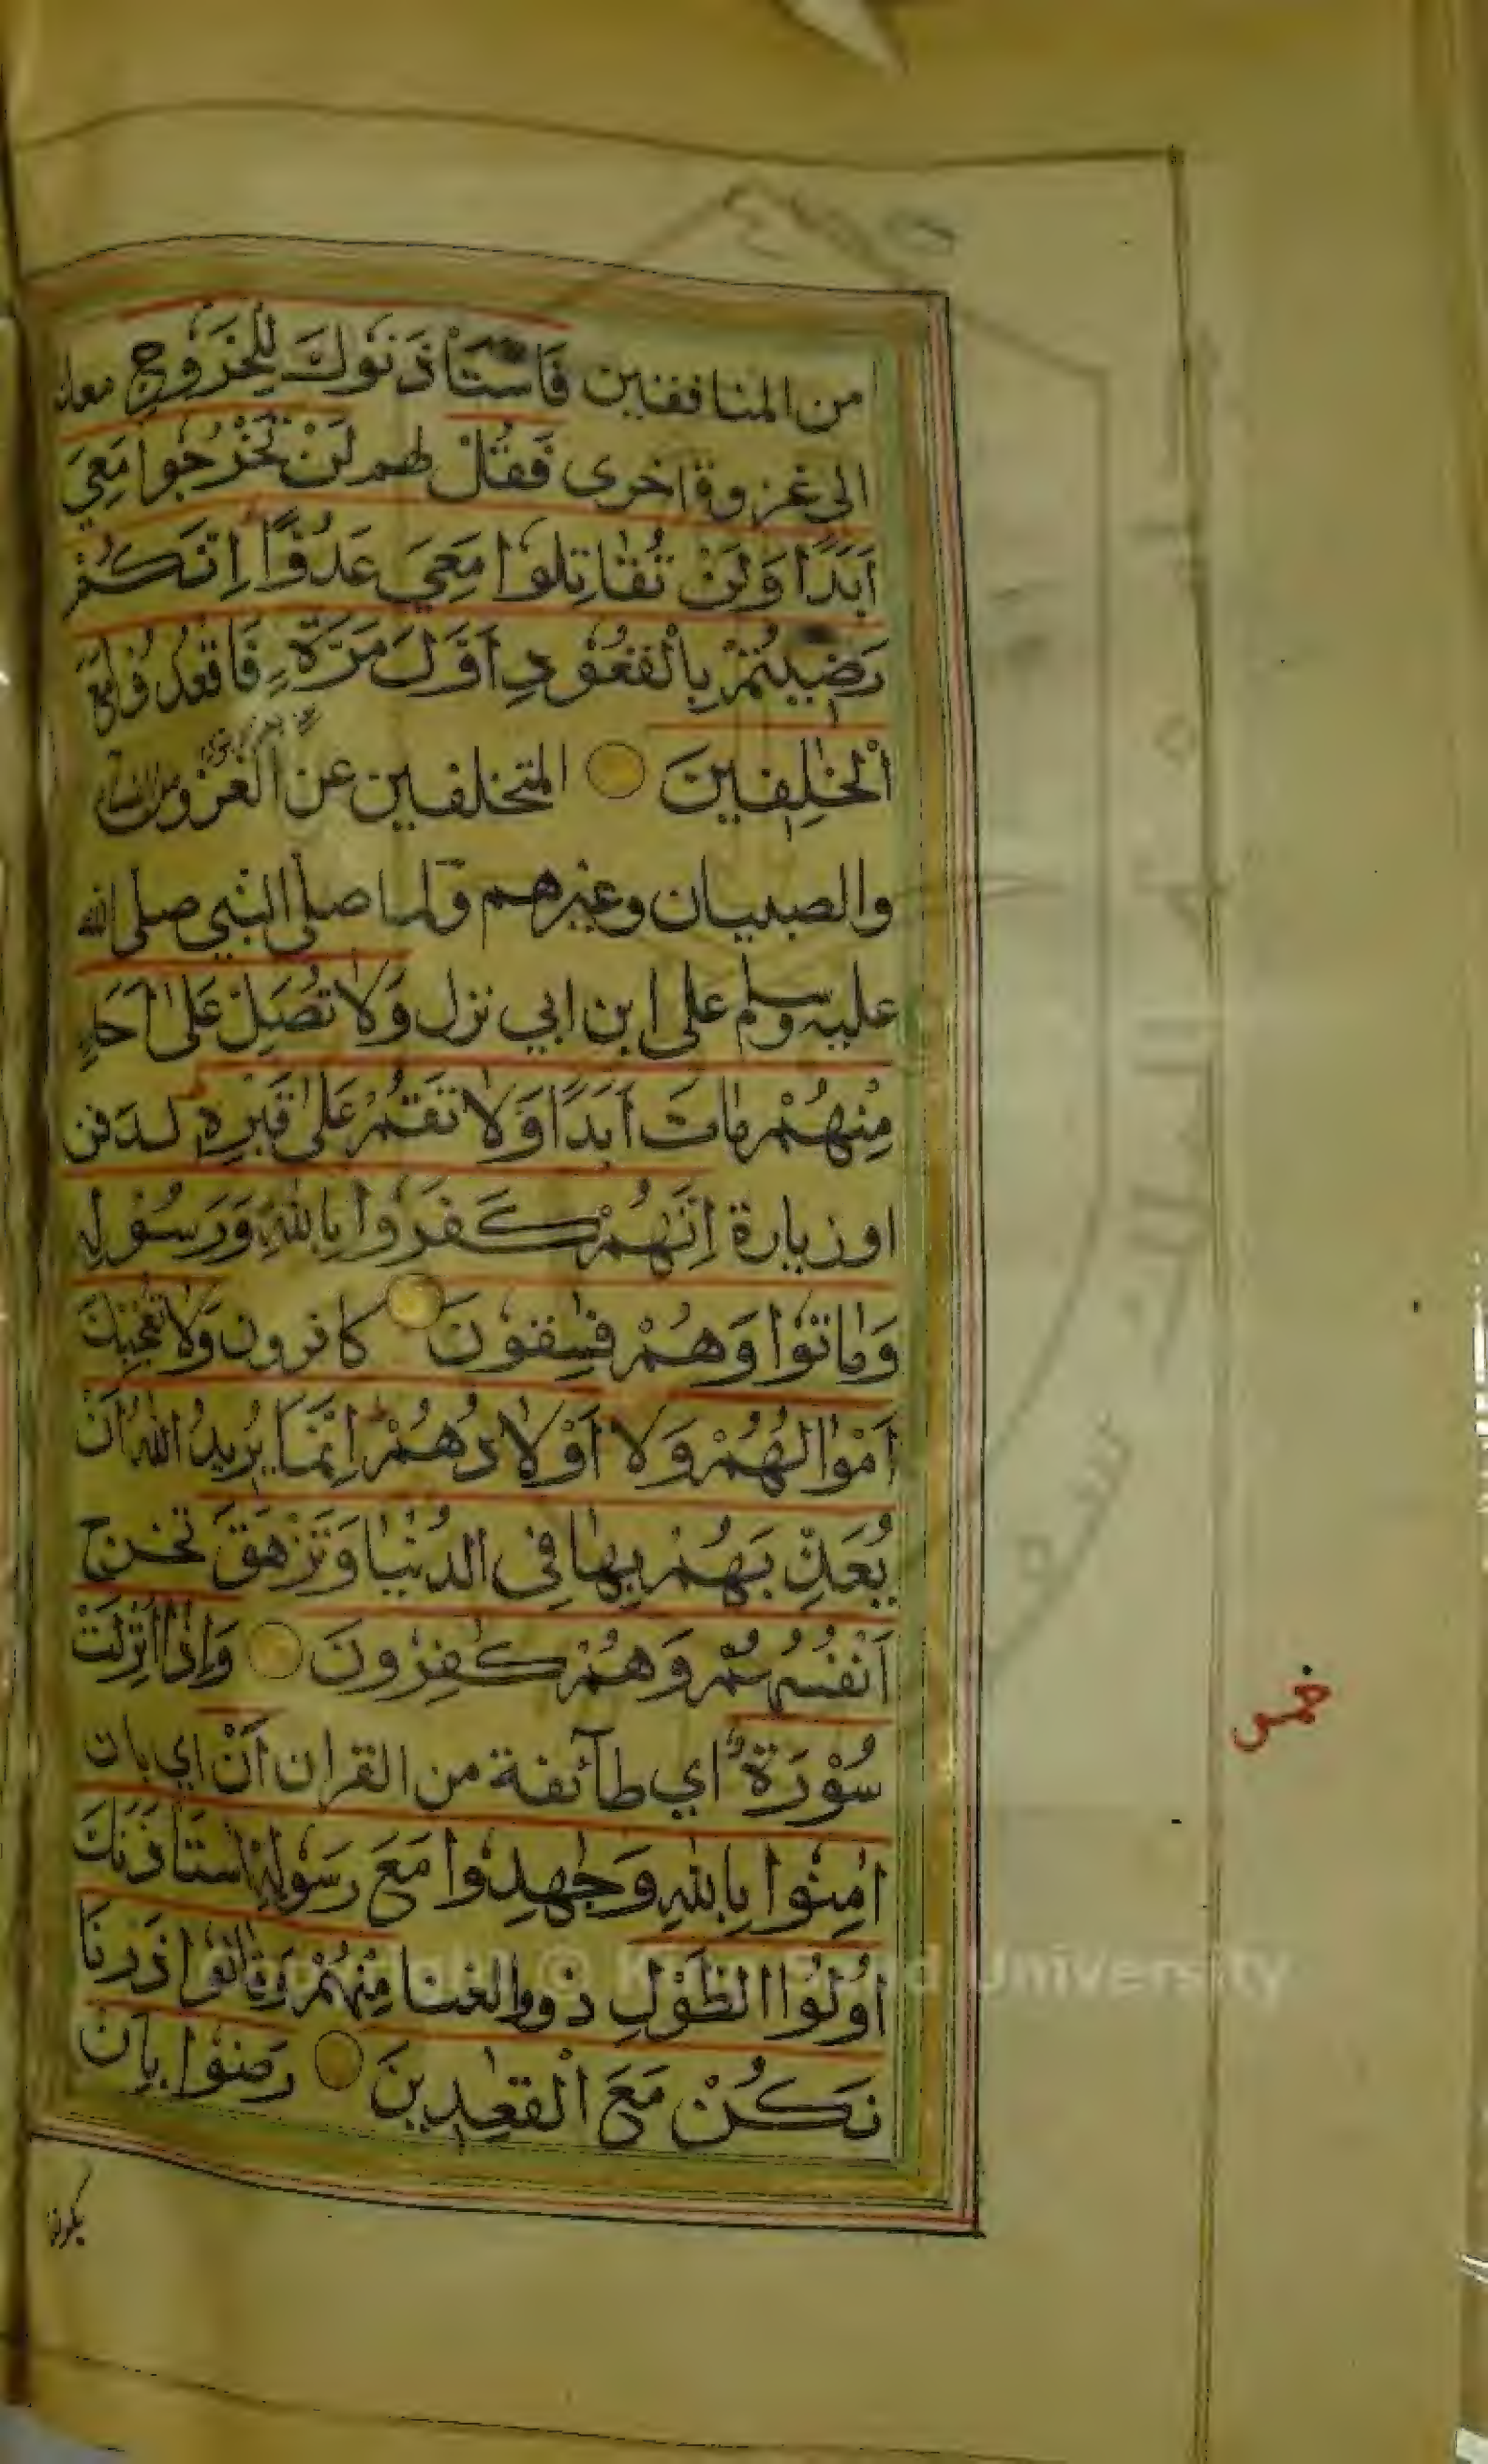 من المنافقين فَاسْتَأْذَنُوكَ لِلْخُرُوجِ معك
الى غزوة اخرى فَقُلْ لهم لَنْ تَخْرُجُوا مَعِيَ
اَبَدًا وَلَنْ تُقَاتِلُوا مَعِيَ عَدُوًّا اِنَّكُمْ
رَضِيتُمْ بِالْقُعُودِ اَوَّلَ مَرَّةٍ فَاقْعُدُوا مَعَ
الْخٰلِفِينَ المتخلفين عن الغزو من النساء
والصبيان وغيرهم ولما صلى النبي صلى الله
عليه وسلم على ابن ابي نزل وَلَا تُصَلِّ عَلٰى اَحَدٍ
مِنْهُمْ مَاتَ اَبَدًا وَلَا تَقُمْ عَلٰى قَبْرِهِ لدفن
او زيارة اِنَّهُمْ كَفَرُوا بِاللهِ وَرَسُولِهِ
وَمَاتُوا وَهُمْ فٰسِقُونَ كافرون وَلَا تُعْجِبْكَ
اَمْوَالُهُمْ وَلَا اَوْلَادُهُمْ اِنَّمَا يُرِيدُ اللهُ اَنْ
يُعَذِّبَهُمْ بِهَا فِى الدُّنْيَا وَتَزْهَقَ تخرج
اَنْفُسُهُمْ وَهُمْ كٰفِرُونَ وَاِذَا اُنْزِلَتْ
سُوْرَةٌ اي طآئفة من القران اَنْ اي بان
اٰمِنُوا بِاللهِ وَجٰهِدُوا مَعَ رَسُولِهِ اسْتَأْذَنَكَ
اُولُوا الطَّوْلِ ذووا الغنا مِنْهُمْ وَقَالُوا ذَرْنَا
نَكُنْ مَعَ الْقٰعِدِينَ رَضُوا بِاَنْ
يكونوا
خمس
Copyright © King Saud University